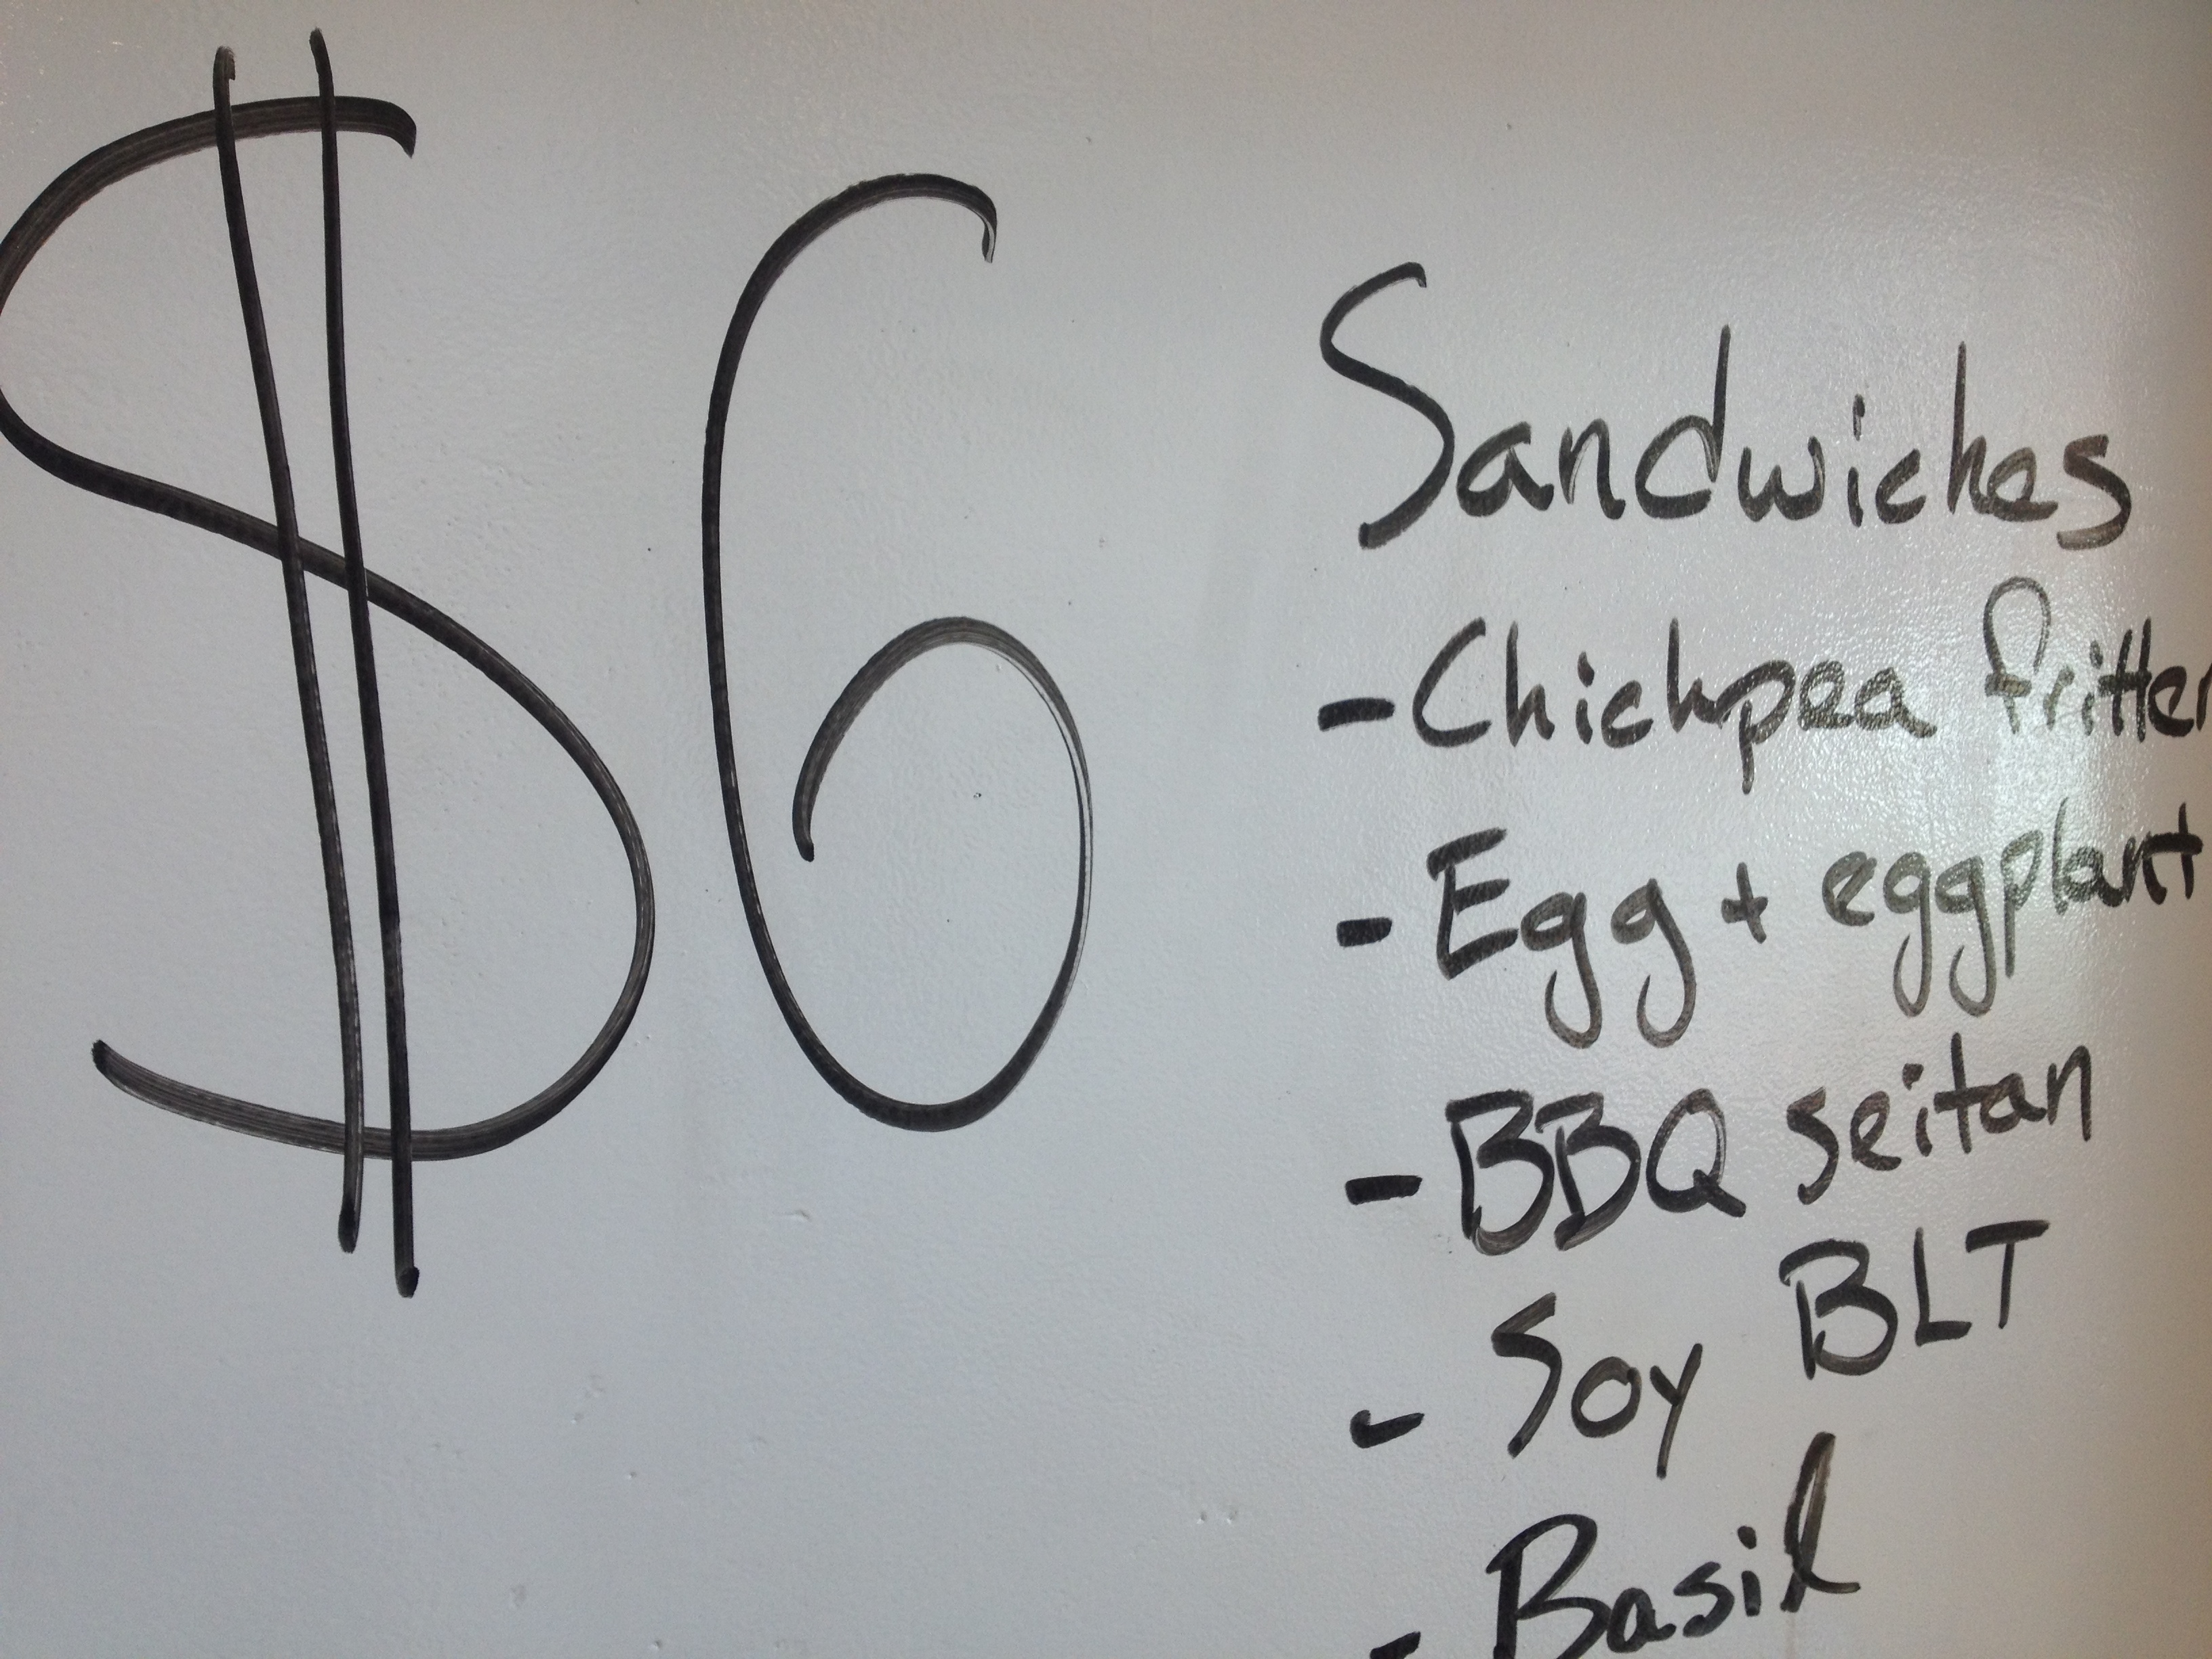 $6
Sandwiches
- Chickpea fritter
- Egg + eggplant
- BBQ seitan
- Soy BLT
- Basil